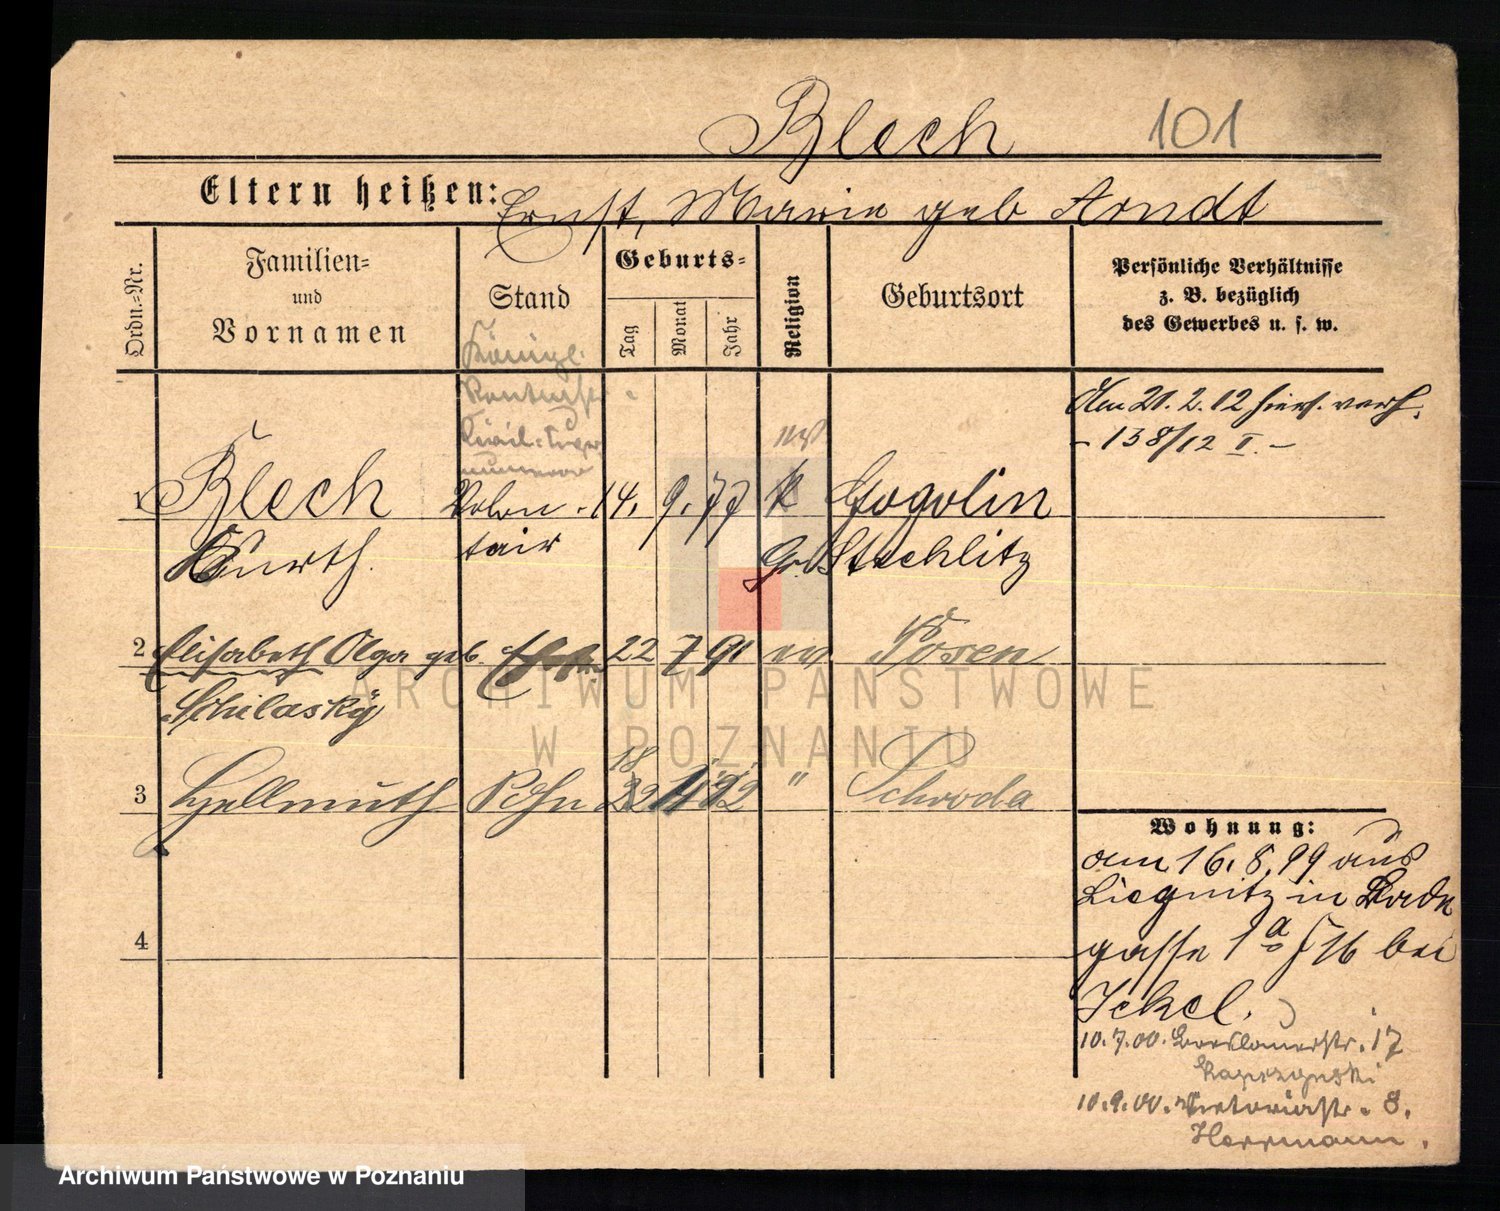 Blech 101
Eltern heißen: Ernst, Marie geb Arndt
Ordn.-Nr.
Familien-
und
Vornamen
Stand
Geburts-
Tag
Monat
Jahr
Religion
Geburtsort
Persönliche Verhältnisse
z. B. bezüglich
des Gewerbes u. s. w.
Königl.
Am 21. 2. 12 hiers. verh.
- 138/12 I. -
1 Blech Volon- 14. 9. 77 k Gogolin
Kurth. tair Gr. Stechlitz
2 Elisabeth Olga geb 22 7 91 ev Posen
Schilasky
18
3 Hellmuth Sohn 12 " Schroda
4
Wohnung:
am 16. 8. 99 aus
Liegnitz in
gasse 1a bei
Jckel.
10. 7. 00. Breslauerstr. 17
10. 9. 00. Victoriastr. 8.
Herrmann.
ARCHIWUM PAŃSTWOWE
W POZNANIU
Archiwum Państwowe w Poznaniu